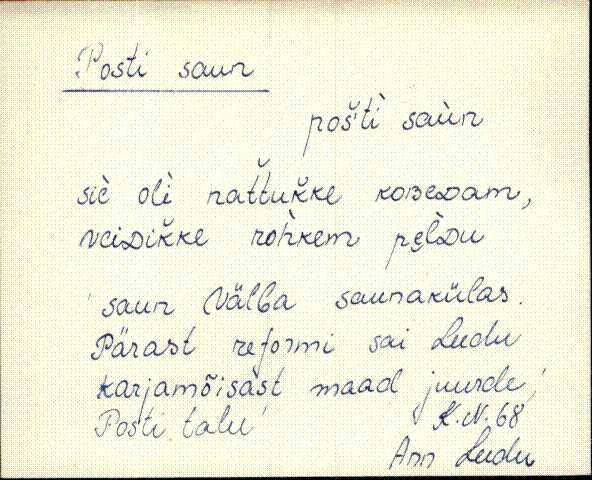 Posti saun
poštì̬ saùn
siè olì nattukke koʙeᴅam,
veiᴅikke rohkem pe̮lᴅu
'saun Välba saunakülas.
Pärast reformi sai Ludu
karjamõisast maad juurde,'
Posti talu'
K.N. 68
Ann Ludu